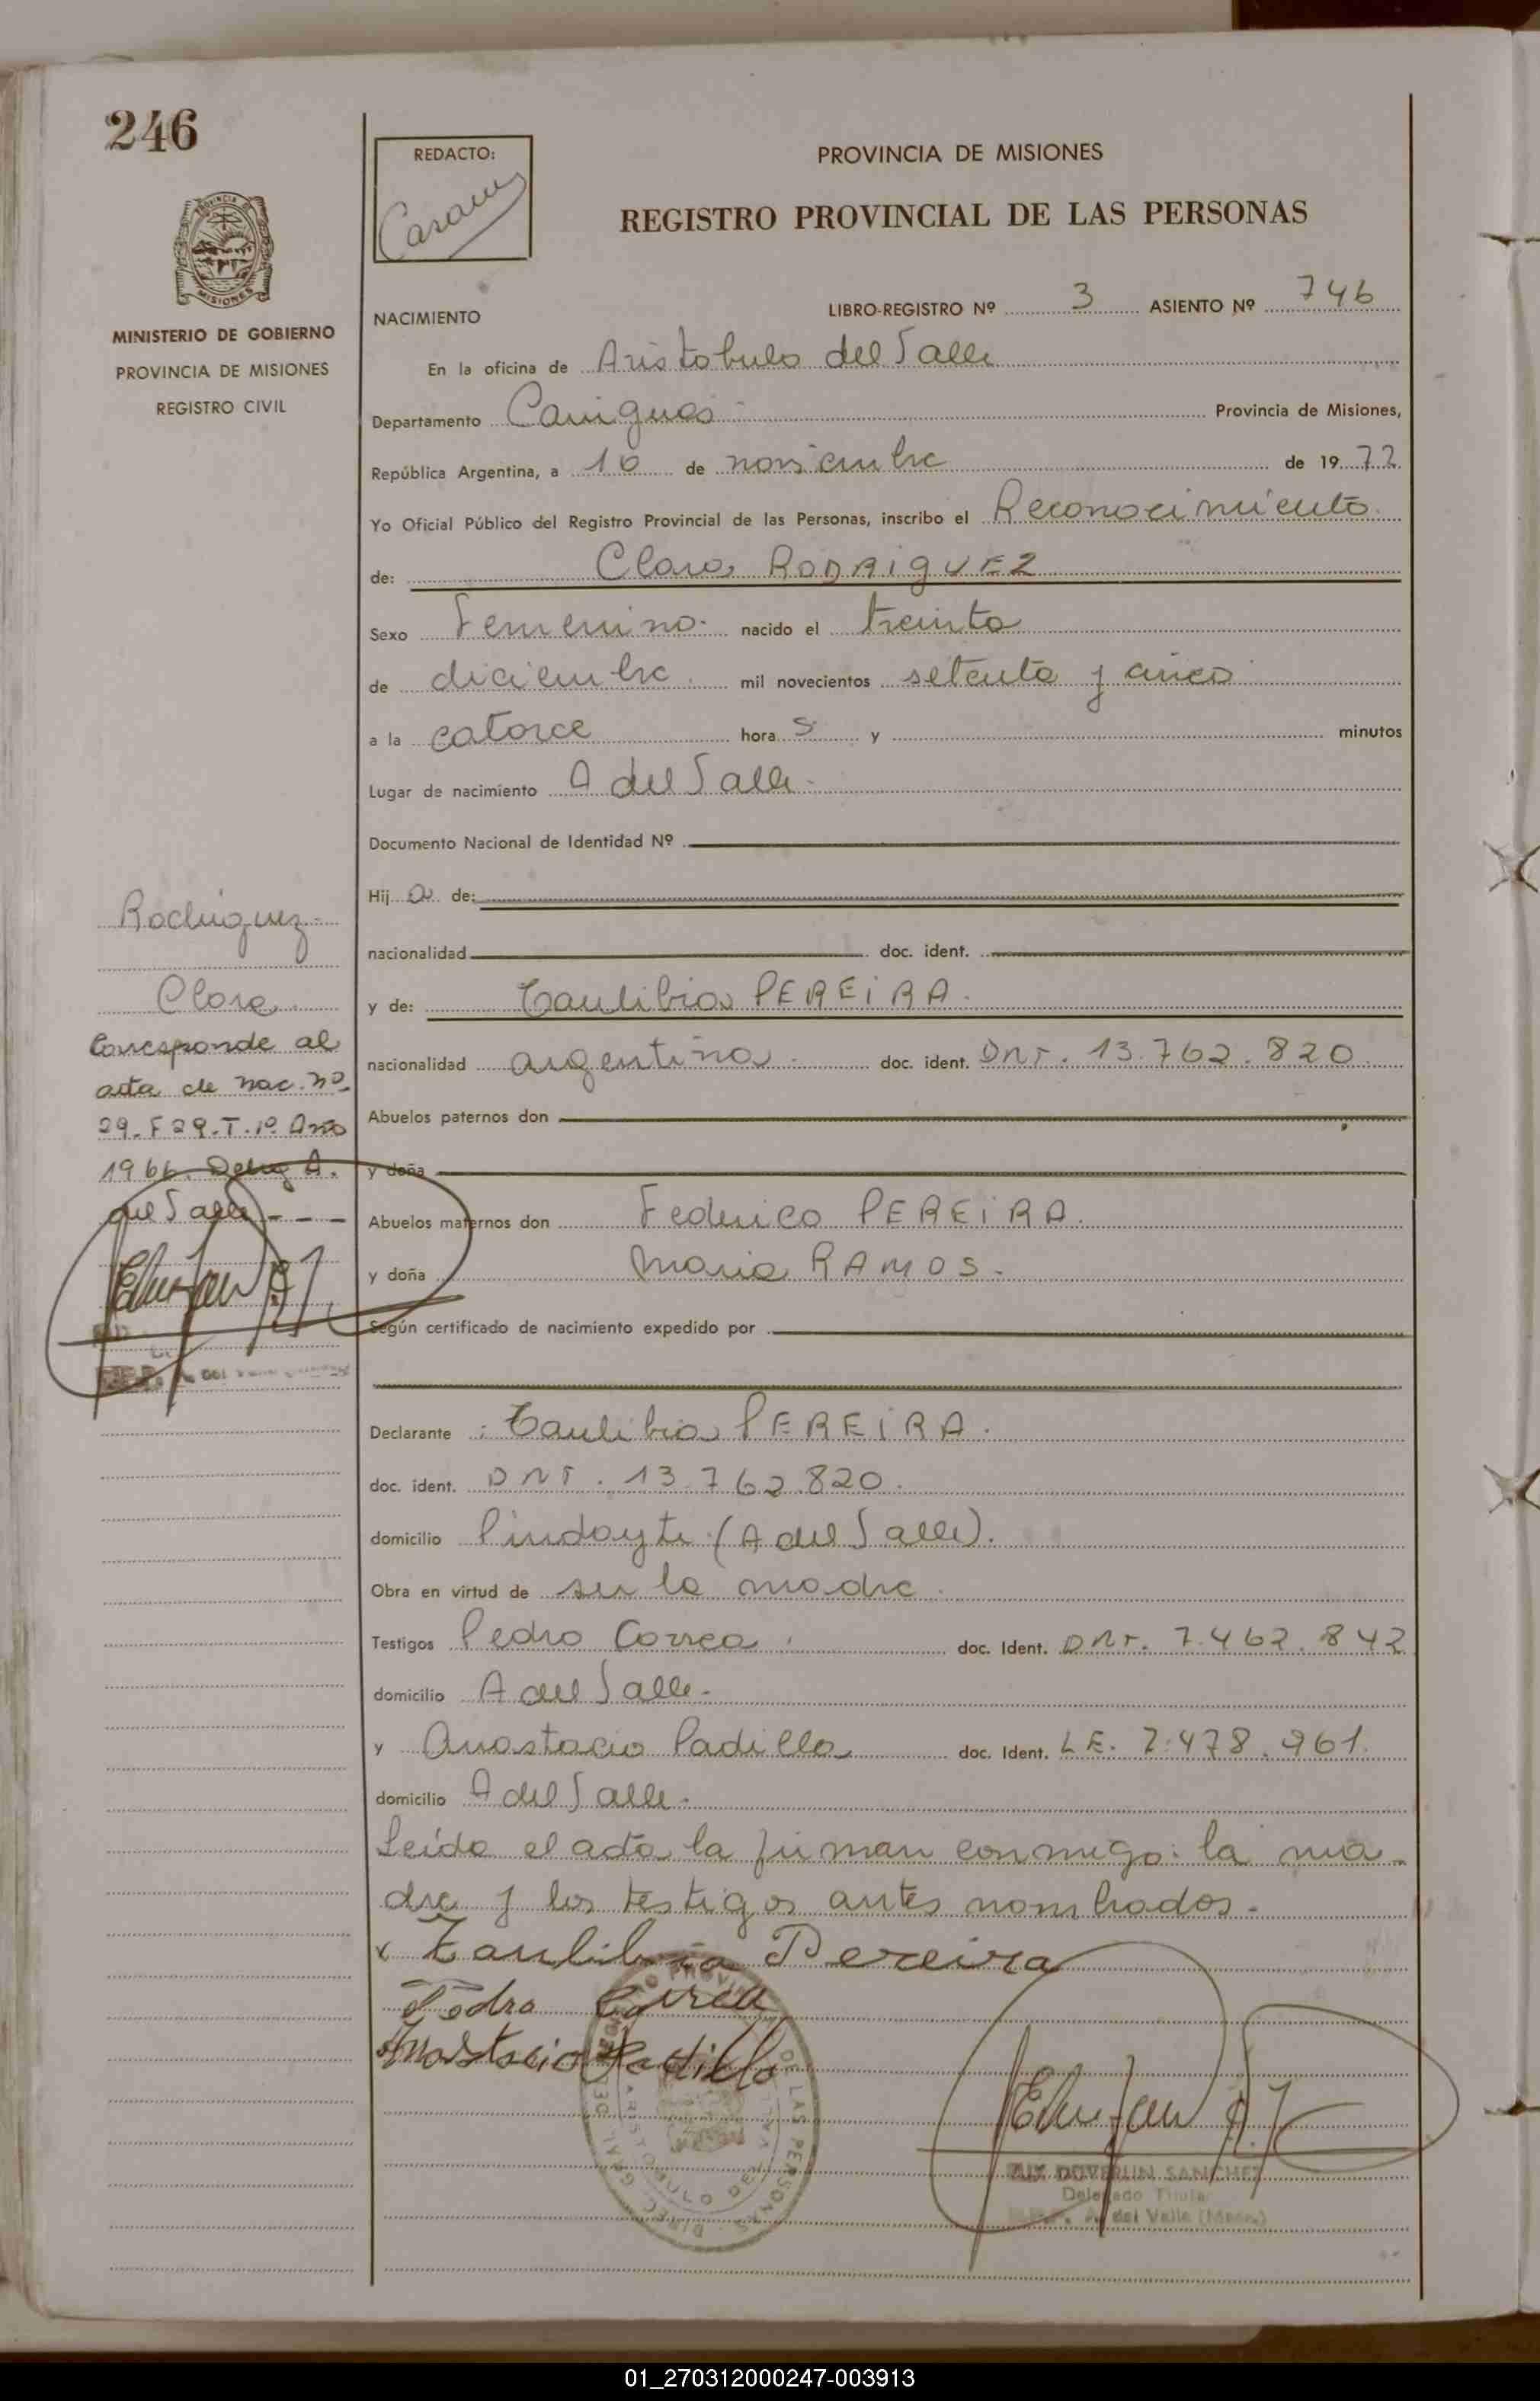 246
REDACTO:
PROVINCIA DE MISIONES
REGISTRO PROVINCIAL DE LAS PERSONAS
MINISTERIO DE GOBIERNO
PROVINCIA DE MISIONES
REGISTRO CIVIL
NACIMIENTO
LIBRO-REGISTRO Nº 3 ASIENTO Nº 746
En la oficina de Aristobulo del Valle
Departamento Cainguas Provincia de Misiones,
República Argentina, a 10 de noviembre de 1972
Yo Oficial Público del Registro Provincial de las Personas, inscribo el Reconocimiento
de: Clara RODRIGUEZ
Sexo Femenino nacido el treinta
de diciembre mil novecientos setenta y cinco
a la catorce hora s y minutos
Lugar de nacimiento A del Valle
Documento Nacional de Identidad Nº
Hij a de:
nacionalidad doc. ident.
y de: PEREIRA
nacionalidad argentina doc. ident. DNI. 13.762.820
Abuelos paternos don
y doña
Abuelos maternos don Federico PEREIRA
y doña Maria RAMOS
Según certificado de nacimiento expedido por
Rodriguez
Clara
Corresponde al
acta de nac. nº
29. F 29. T. 1º Año
1966. Deleg A.
del Valle - - -
Declarante : PEREIRA
doc. ident. DNI. 13.762.820
domicilio Pindayti (A del Valle).
Obra en virtud de ser la madre
Testigos Pedro Correa doc. Ident. DNI. 7.462.842
domicilio A del Valle
y Anastacio Padilla doc. Ident. LE. 7.478.961
domicilio A del Valle
Leída el acta la firman conmigo: la ma-
dre y los testigos antes nombrados.
x Pereira
Pedro Correa
Anastacio Padilla
DOVERLIN SANCHEZ
Delegado Titular
A. del Valle (Mnes.)
01_270312000247-003913